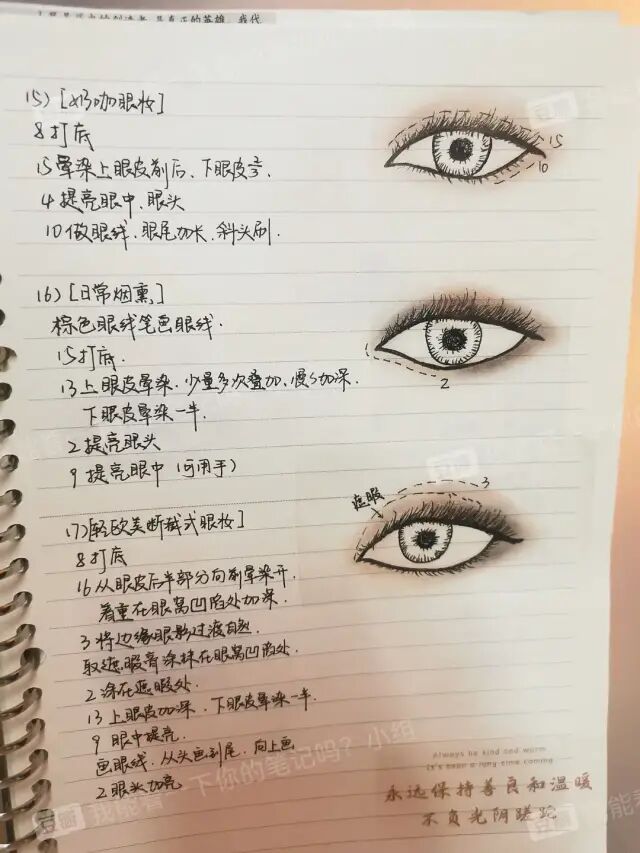 15)[奶咖眼妆]
8打底
15晕染上眼皮前后、下眼皮
4提亮眼中、眼头
10做眼线、眼尾加长、斜头刷.
15
10
16)[日常烟熏]
棕色眼线笔画眼线.
15打底.
13上眼皮晕染.少量多次叠加、慢慢加深.
下眼皮晕染一半.
2提亮眼头
9提亮眼中(可用手)
2
17)[轻欧美断截式眼妆]
8打底
16从眼皮后半部分向前晕染开.
着重在眼窝凹陷处加深.
3将边缘眼影过渡自然.
取遮瑕膏涂抹在眼窝凹陷处.
2涂在遮瑕处.
13上眼皮加深、下眼皮晕染一半.
9眼中提亮.
画眼线、从头画到尾、向上画
2眼头加亮
遮瑕
3
Always be kind and warm
It's been a long time coming
永远保持善良和温暖
不负光阴蹉跎
豆瓣 我能看一下你的笔记吗? 小组